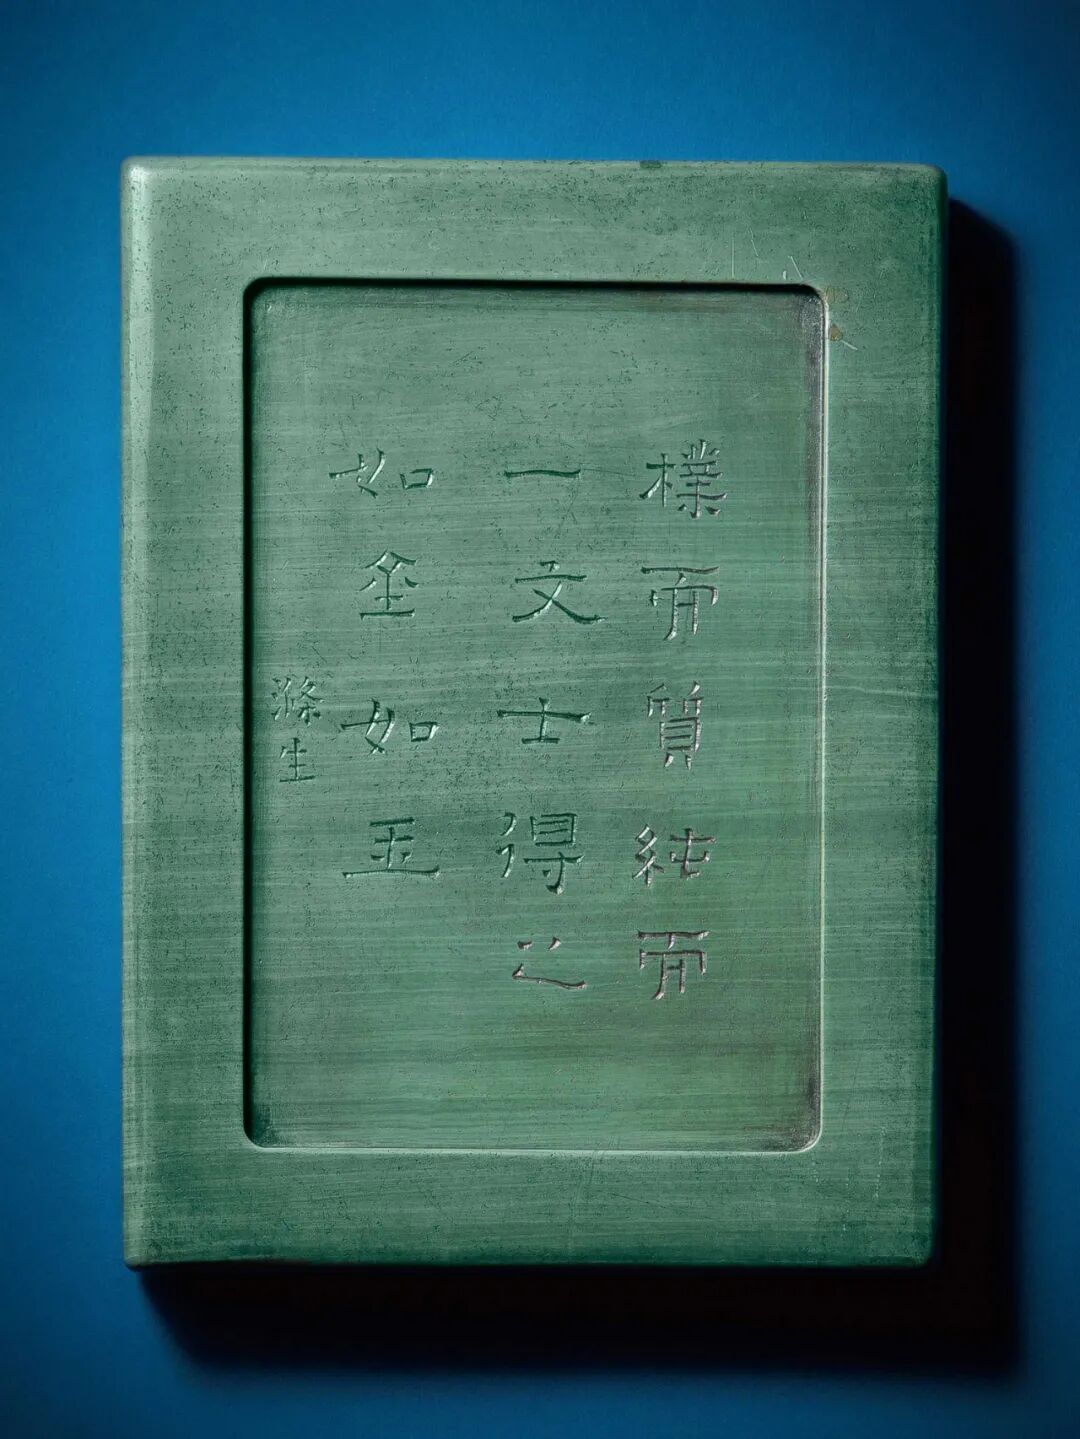 樸而質純而
一文士得之
如金如玉
滌生